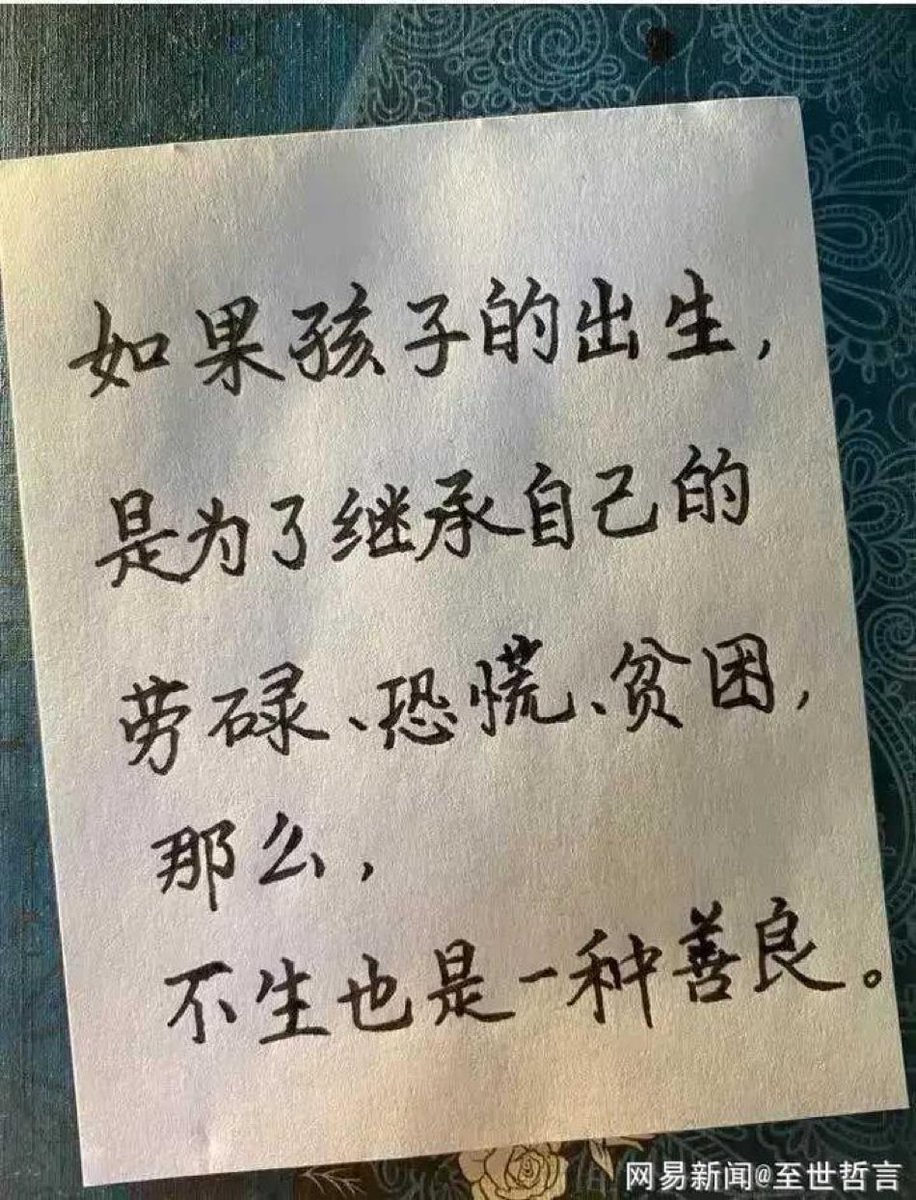 如果孩子的出生，
是为了继承自己的
劳碌、恐慌、贫困，
那么，
不生也是一种善良。
网易新闻@至世哲言